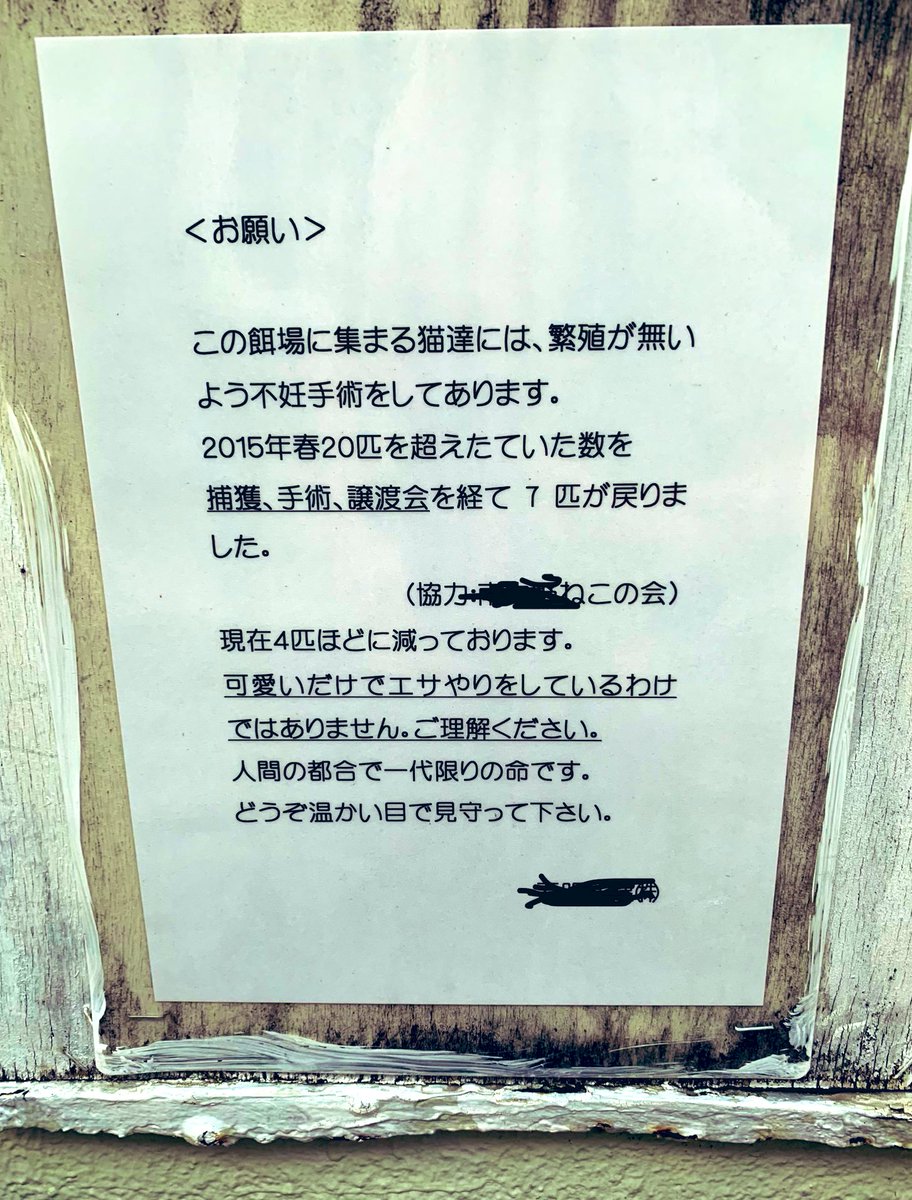 <お願い>
この餌場に集まる猫達には、繁殖が無い
よう不妊手術をしてあります。
2015年春20匹を超えたていた数を
捕獲、手術、譲渡会を経て 7 匹が戻りま
した。
(協力 ねこの会)
現在4匹ほどに減っております。
可愛いだけでエサやりをしているわけ
ではありません。ご理解ください。
人間の都合で一代限りの命です。
どうぞ温かい目で見守って下さい。